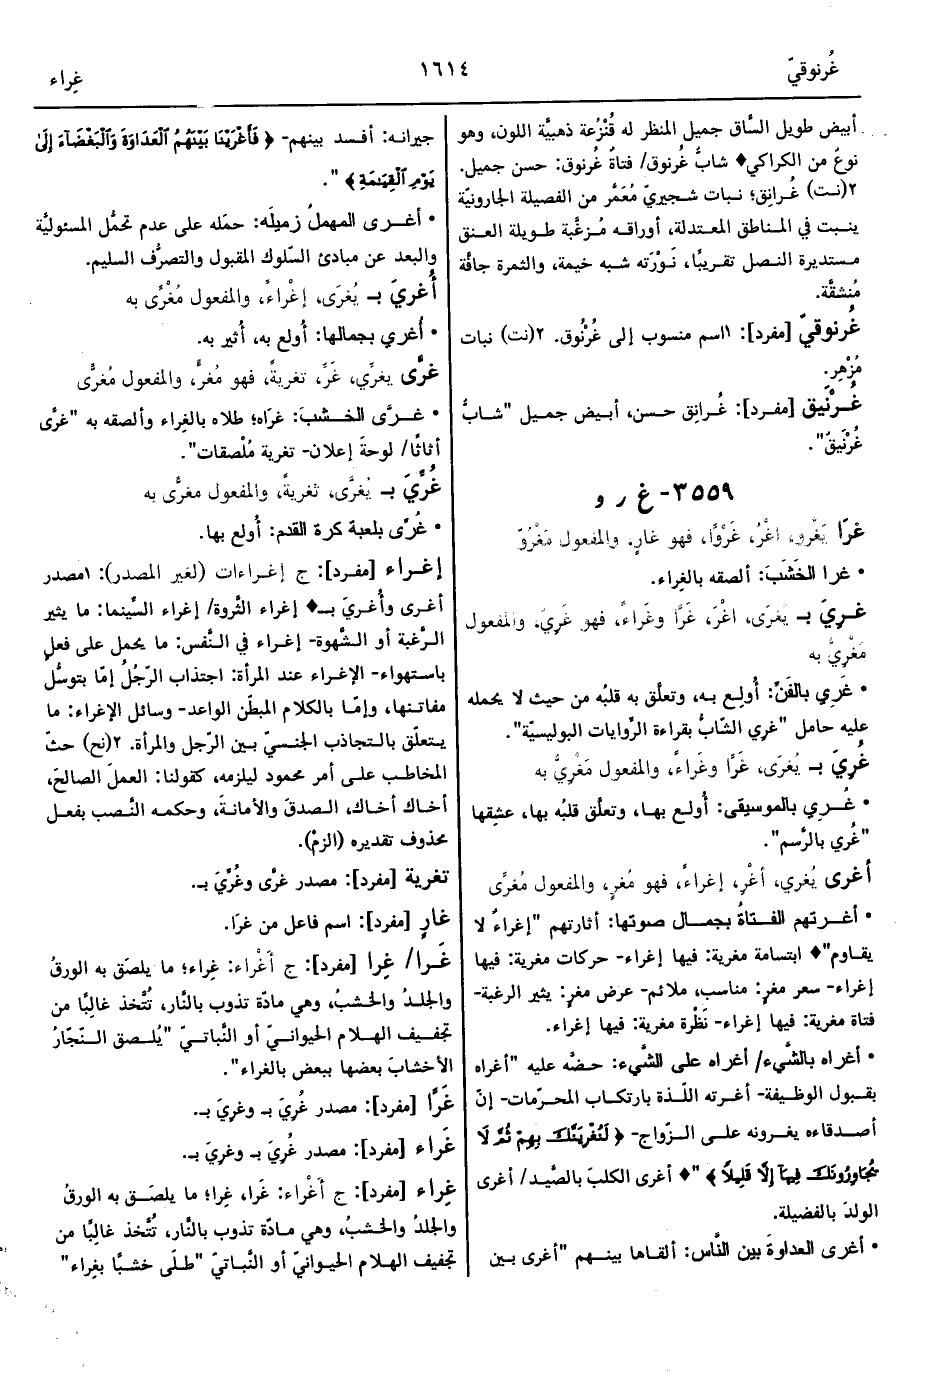 غُرنوقيّ
١٦١٤
غِراء
أبيض طويل السَّاق جميل المنظر له قُنْزُعة ذهبيَّة اللون، وهو
نوعٌ من الكراكي♦ شابٌّ غُرنوق/ فتاةٌ غُرنوق: حسن جميل.
٢(نت) غُرانِق؛ نبات شجيريّ مُعَمَّر من الفصيلة الجارونيّة
ينبت في المناطق المعتدلة، أوراقه مُزغَّبة طويلة العنق
مستديرة النصل تقريبًا، نَوْرَته شبه خيمة، والثمرة جافَّة
مُنشقَّة.
غُرنوقيّ [مفرد]: ١اسم منسوب إلى غُرْنُوق. ٢(نت) نبات
مُزْهِر.
غُرْنَيق [مفرد]: غُرانِق حسن، أبيض جميل "شابٌّ
غُرْنَيقٌ".
٣٥٥٩- غ ر و
غرَا يَغْرو، اغْرُ، غَرْوًا، فهو غارٍ، والمفعول مَغْرُوّ
• غرا الخَشَبَ: ألصقه بالغِراء.
غرِيَ بـ يَغرَى، اغْرَ، غَرًا وغَراءً، فهو غَرِيّ، والمفعول
مَغْرِيٌّ به
• غَرِي بالفَنِّ: أُولِع به، وتعلَّق به قلبُه من حيث لا يحمله
عليه حامل "غري الشَّابُّ بقراءة الرِّوايات البوليسيَّة".
غُرِيَ بـ يُغرَى، غَرًا وغَراءً، والمفعول مَغْرِيٌّ به
• غُرِي بالموسيقى: أُولع بها، وتعلَّق قلبُه بها، عشِقها
"غُري بالرَّسم".
أغرى يُغري، أغْرِ، إغراءً، فهو مُغرٍ، والمفعول مُغرًى
• أغرتهم الفتاةُ بجمال صوتها: أثارتهم "إغراءٌ لا
يقاوم"♦ ابتسامة مغرية: فيها إغراء- حركات مغرية: فيها
إغراء- سعر مغرٍ: مناسب، ملائم- عرض مغرٍ: يثير الرغبة-
فتاة مغرية: فيها إغراء- نَظْرة مغرية: فيها إغراء.
• أغراه بالشَّيء/ أغراه على الشَّيء: حضَّه عليه "أغراه
بقبول الوظيفة- أغرته اللذة بارتكاب المحرّمات- إنّ
أصدقاءه يغرونه على الزّواج- ﴿ لَنُغْرِيَنَّكَ بِهِمْ ثُمَّ لَا
يُجَاوِرُونَكَ فِيهَآ إِلَّا قَلِيلًا ﴾ "♦ أغرى الكلبَ بالصَّيد/ أغرى
الولدَ بالفضيلة.
• أغرى العداوةَ بين النَّاس: ألقاها بينهم "أغرى بين
جيرانه: أفسد بينهم- ﴿ فَأَغْرَيْنَا بَيْنَهُمُ ٱلْعَدَاوَةَ وَٱلْبَغْضَآءَ إِلَىٰ
يَوْمِ ٱلْقِيَٰمَةِ ﴾ ".
• أغرى المهملُ زميلَه: حمَله على عدم تحمُّل المسئوليَّة
والبعد عن مبادئ السّلوك المقبول والتصرُّف السليم.
أُغرِيَ بـ يُغرَى، إغْراءً، والمفعول مُغْرًى به
• أُغري بجمالها: أُولع به، أُثير به.
غرَّى يغرِّي، غَرِّ، تغريةً، فهو مُغرٍّ، والمفعول مُغرًّى
• غرَّى الخشبَ: غرَاه؛ طلاه بالغِراء وألصقه به "غرَّى
أثاثًا/ لوحةَ إعلان- تغرية مُلْصقات".
غُرِّيَ بـ يُغرَّى، تغريةً، والمفعول مغرًّى به
• غُرِّي بلعبة كرة القدم: أُولع بها.
إغراء [مفرد]: ج إغراءات (لغير المصدر): ١مصدر
أغرى وأُغريَ بـ♦ إغراء الثَّروة/ إغراء السِّينما: ما يثير
الرَّغبة أو الشَّهوة- إغراء في النَّفس: ما يحمل على فعلٍ
باستهواء- الإغراء عند المرأة: اجتذاب الرَّجُلُ إمَّا بتوسُّل
مفاتنها، وإمَّا بالكلام المبطَّن الواعد- وسائل الإغراء: ما
يتعلّق بالتجاذب الجنسيّ بين الرّجل والمرأة. ٢(نح) حثّ
المخاطب على أمر محمود ليلزمه، كقولنا: العملَ الصالحَ،
أخاك أخاك، الصدقَ والأمانةَ، وحكمه النَّصب بفعل
محذوف تقديره (الزمْ).
تغرية [مفرد]: مصدر غرَّى وغُرِّيَ بـ.
غارٍ [مفرد]: اسم فاعل من غرَا.
غَرا/ غِرا [مفرد]: ج أَغْراء: غِراء؛ ما يلصَق به الورقُ
والجلدُ والخشبُ، وهي مادّة تذوب بالنَّار، تُتَّخذ غالبًا من
تجفيف الهلام الحيوانيّ أو النَّباتيّ "يُلصق النّجّارُ
الأخشابَ بعضها ببعض بالغراء".
غَرًا [مفرد]: مصدر غُرِيَ بـ وغرِيَ بـ.
غَراء [مفرد]: مصدر غُرِيَ بـ وغرِيَ بـ.
غِراء [مفرد]: ج أَغْراء: غَرا، غِرا؛ ما يلصَق به الورقُ
والجلدُ والخشبُ، وهي مادّة تذوب بالنَّار، تُتَّخذ غالبًا من
تجفيف الهلام الحيوانيّ أو النَّباتيّ "طلَى خشبًا بغِراء"